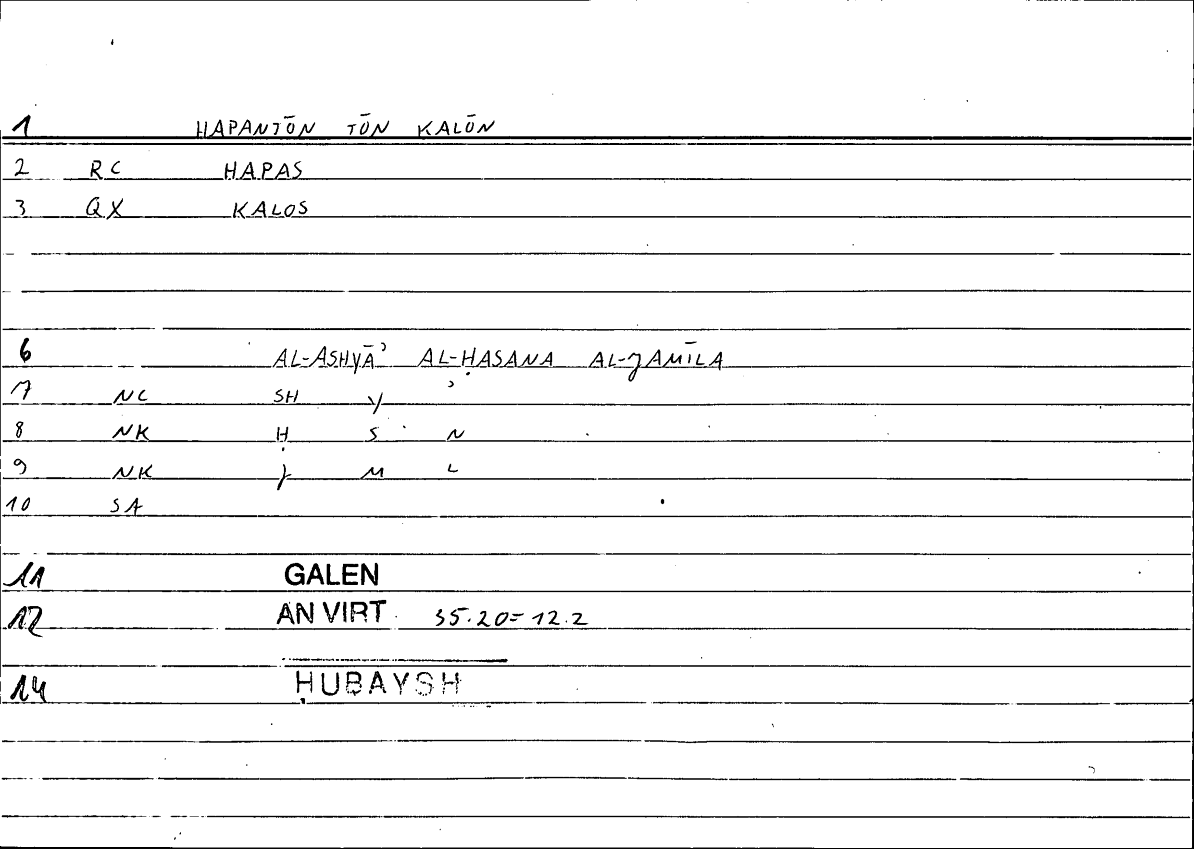 1 HAPANTŌN TŌN KALŌN
2 RC HAPAS
3 QX KALOS
6 AL-ASHYĀʾ AL-ḤASANA AL-JAMĪLA
7 NC SH Y ʾ
8 NK Ḥ S N
9 NK J M L
10 SA
11 GALEN
12 AN VIRT 35.20=12.2
14 ḤUBAYSH